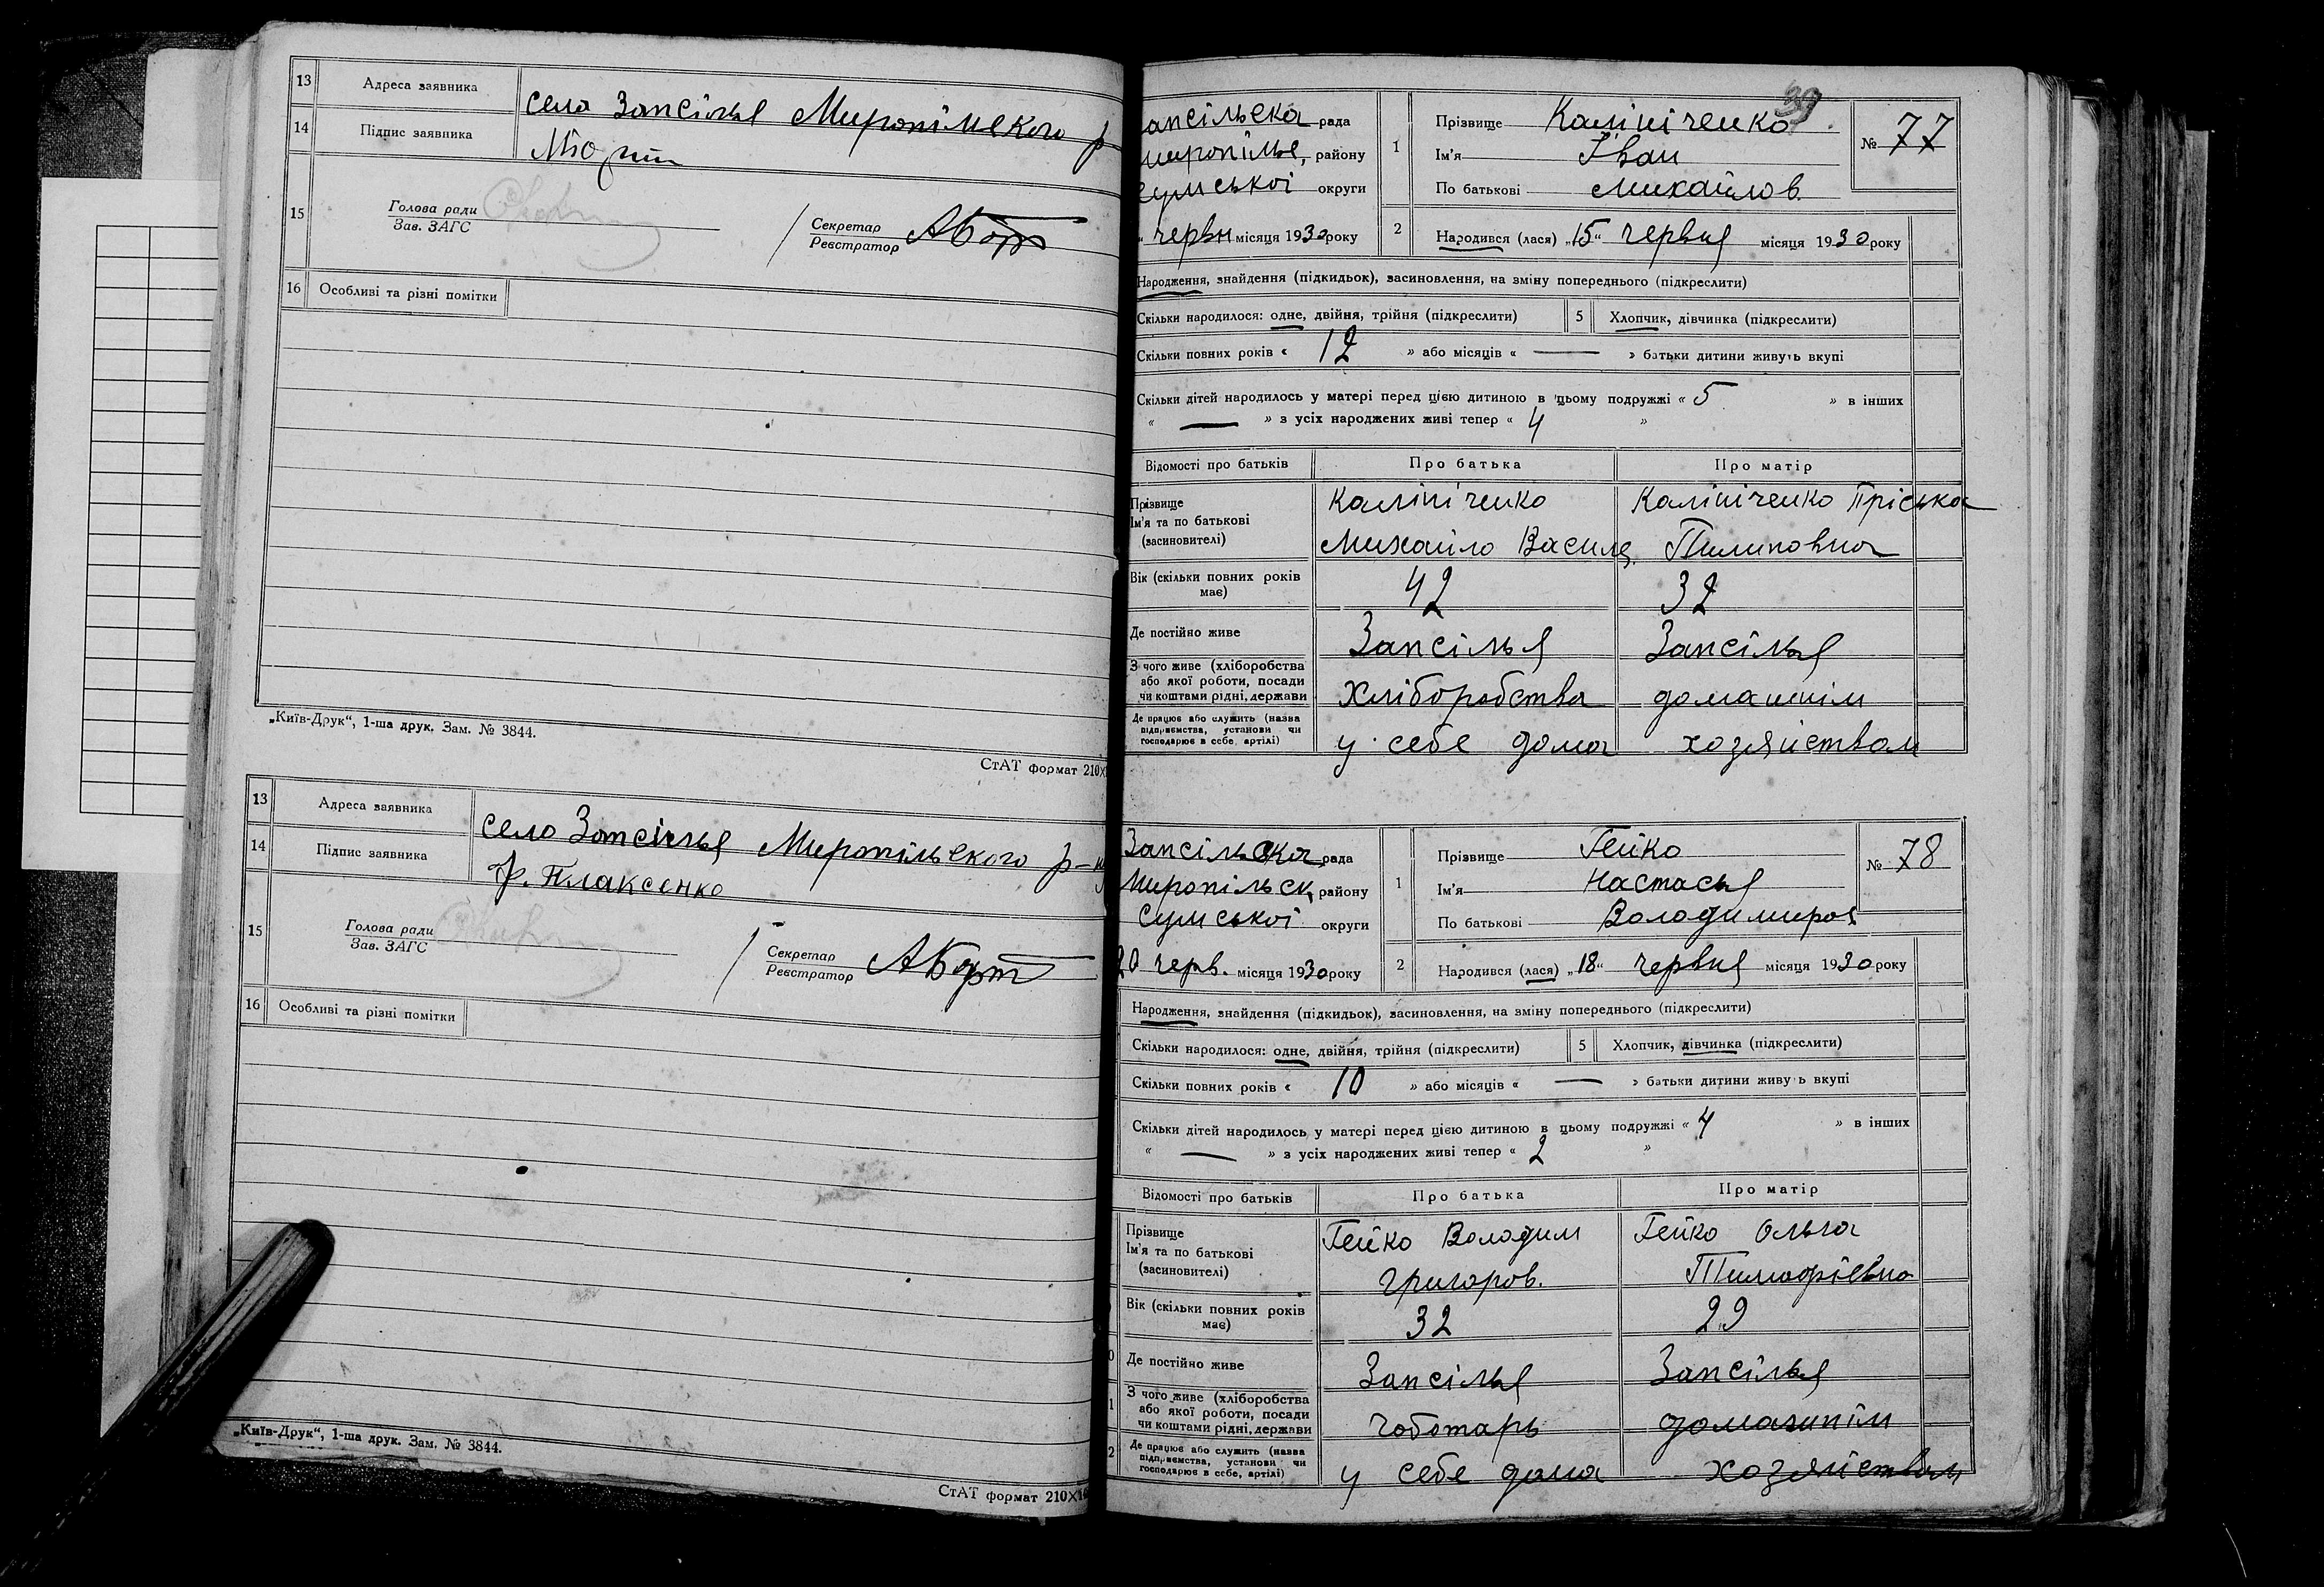 13 Адреса заявника село Запсілья Миропільского р
14 Підпис заявника
15 Голова ради
Зав. ЗАГС
Секретар
Реєстратор АБорт
16 Особливі та різні помітки
„Київ-Друк“, 1-ша друк. Зам. № 3844.
СтАТ формат 210×
13 Адреса заявника село Запсілья Миропільского р-ну
14 Підпис заявника Ф. Плаксенко
15 Голова ради
Зав. ЗАГС
Секретар
Реєстратор АБорт
16 Особливі та різні помітки
„Київ-Друк“, 1-ша друк. Зам. № 3844.
СтАТ формат 210×1
39
апсільска рада
району
сумської округи
червн місяця 1930 року
1 Прізвище Калініченко
Ім'я Іван
По батькові Михайлов.
№ 77
2 Народився (лася) „15“ червня місяця 1930 року
Народження, знайдення (підкидьок), засиновлення, на зміну попереднього (підкреслити)
Скільки народилося: одне, двійня, трійня (підкреслити) 5 Хлопчик, дівчинка (підкреслити)
Скільки повних років « 12 » або місяців « — » батьки дитини живуть вкупі
Скільки дітей народилось у матері перед цією дитиною в цьому подружжі « 5 » в інших
« — » з усіх народжених живі тепер « 4 »
Відомості про батьків Про батька Про матір
Прізвище
Ім'я та по батькові
(засновителі)
Калініченко
Михайло Василь.
Калініченко Пріська
Пилиповна
Вік (скільки повних років
має)
42 32
Де постійно живе Запсілья Запсілья
З чого живе (хліборобства
або якої роботи, посади
чи коштами рідні, держави
хліборобства домашнім
Де працює або служить (назва
підприємства, установи чи
господарює в себе, артілі)
у себе дома хозяйством
Запсільска рада
Миропільск. району
Сумської округи
20 черв. місяця 1930 року
1 Прізвище Гейко
Ім'я Настасья
По батькові Володимиров
№ 78
2 Народився (лася) „18“ червня місяця 1930 року
Народження, знайдення (підкидьок), засиновлення, на зміну попереднього (підкреслити)
Скільки народилося: одне, двійня, трійня (підкреслити) 5 Хлопчик, дівчинка (підкреслити)
Скільки повних років « 10 » або місяців « — » батьки дитини живуть вкупі
Скільки дітей народилось у матері перед цією дитиною в цьому подружжі « 4 » в інших
« — » з усіх народжених живі тепер « 2 »
Відомості про батьків Про батька Про матір
Прізвище
Ім'я та по батькові
(засиновителі)
Гейко Володим
Григоров.
Гейко Ольга
Тимофіевна
Вік (скільки повних років
має)
32 29
Де постійно живе Запсілья Запсілья
З чого живе (хліборобства
або якої роботи, посади
чи коштами рідні, держави
чоботарь домашнім
Де працює або служить (назва
підприємства, установи чи
господарює в себе, артілі)
у себе дома хозяйством